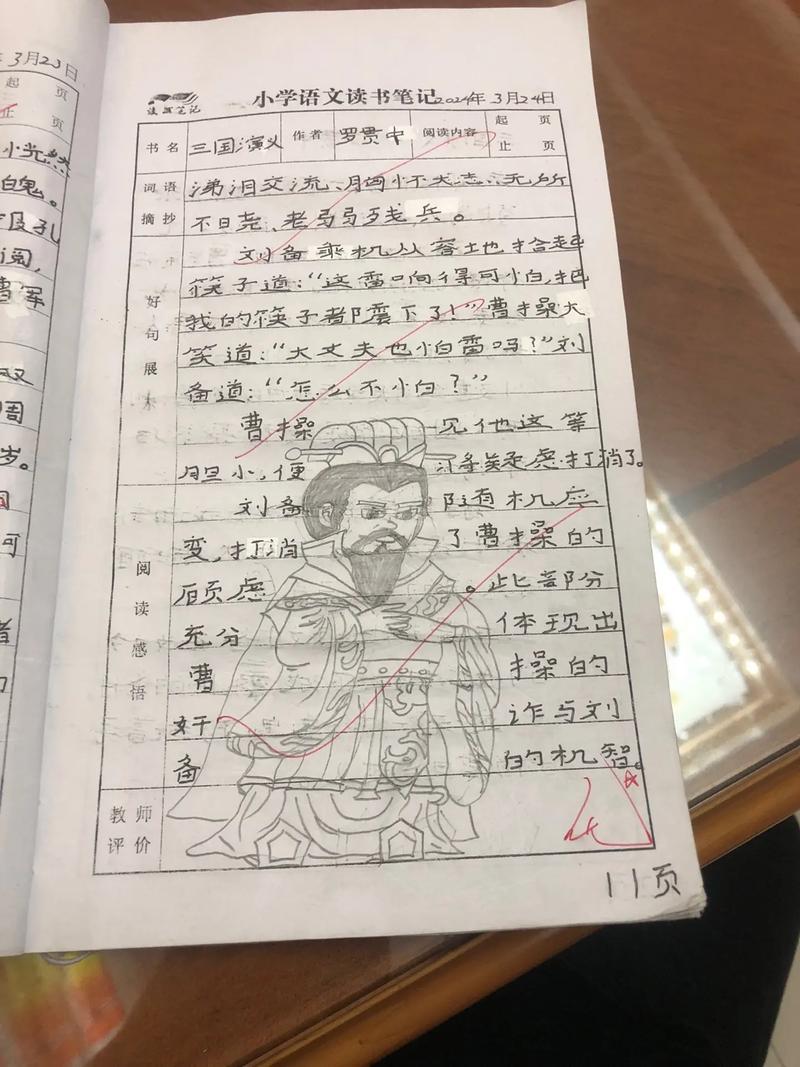 3月23日
起 页
止 页
读书笔记
小学语文读书笔记 2024年 3月24日
书名 三国演义 作者 罗贯中 阅读内容 起 页 止 页
词语摘抄
涕泪交流、胸怀大志、无所
不日尧、老弱残兵。
好句展示
刘备乘机从容地拾起
筷子道:“这雷响得可怕,把
我的筷子都震下了!”曹操大
笑道:“大丈夫也怕雷吗?”刘
备道:“怎么不怕?”
曹操 见他这等
胆小,便 将疑虑打消了。
阅读感悟
刘备 随机应
变,打消 了曹操的
顾虑 。此部分
充分 体现出
曹 操的
奸 诈与刘
备 的机智。
教师评价
优
11页